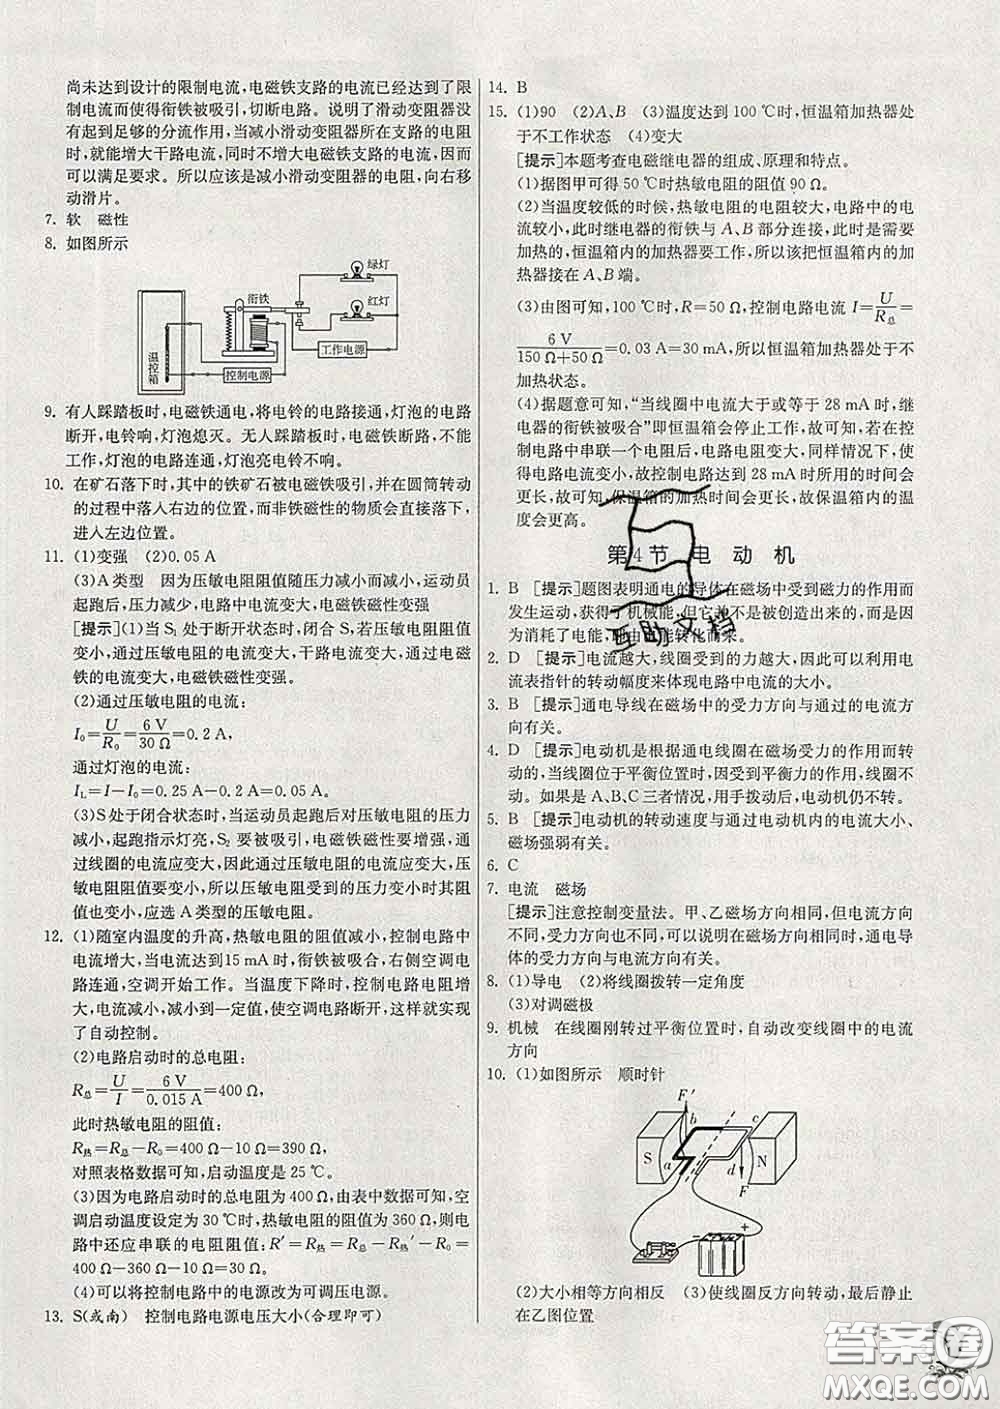 尚未达到设计的限制电流,电磁铁支路的电流已经达到了限
制电流而使得衔铁被吸引,切断电路。说明了滑动变阻器没
有起到足够的分流作用,当减小滑动变阻器所在支路的电阻
时,就能增大干路电流,同时不增大电磁铁支路的电流,因而
可以满足要求。所以应该是减小滑动变阻器的电阻,向右移
动滑片。
7. 软 磁性
8. 如图所示
绿灯
衔铁
红灯
工作电源
温控箱
控制电源
9. 有人踩踏板时,电磁铁通电,将电铃的电路接通,灯泡的电路
断开,电铃响,灯泡熄灭。无人踩踏板时,电磁铁断路,不能
工作,灯泡的电路连通,灯泡亮电铃不响。
10. 在矿石落下时,其中的铁矿石被电磁铁吸引,并在圆筒转动
的过程中落入右边的位置,而非铁磁性的物质会直接落下,
进入左边位置。
11. (1)变强 (2)0.05 A
(3)A类型 因为压敏电阻阻值随压力减小而减小,运动员
起跑后,压力减少,电路中电流变大,电磁铁磁性变强
[提示](1)当 S₁ 处于断开状态时,闭合 S,若压敏电阻阻值
变小,通过压敏电阻电流变大,干路电流变大,通过电磁
铁的电流变大,电磁铁磁性变强。
(2)通过压敏电阻的电流:
I₀=U/R₀=6 V/30 Ω=0.2 A,
通过灯泡的电流:
I_L=I-I₀=0.25 A-0.2 A=0.05 A。
(3)S处于闭合状态时,当运动员起跑后对压敏电阻的压力
减小,起跑指示灯亮,S₂ 要被吸引,电磁铁磁性要增强,通
过线圈的电流应变大,因此通过压敏电阻的电流应变大,压
敏电阻阻值要变小,所以压敏电阻受到的压力变小时其阻
值也变小,应选 A 类型的压敏电阻。
12. (1)随室内温度的升高,热敏电阻的阻值减小,控制电路中
电流增大,当电流达到15 mA时,衔铁被吸合,右侧空调电
路连通,空调开始工作。当温度下降时,控制电路电阻增
大,电流减小,减小到一定值,使空调电路断开,这样就实现
了自动控制。
(2)电路启动时的总电阻:
R总=U/I=6 V/0.015 A=400 Ω,
此时热敏电阻的阻值:
R热=R总-R₀=400 Ω-10 Ω=390 Ω。
对照表格数据可知,启动温度是 25 ℃。
(3)因为电路启动时的总电阻为 400 Ω,由表中数据可知,空
调启动温度设定为 30 ℃时,热敏电阻的阻值为 360 Ω,则电
路中还应串联的电阻阻值:R′=R热=R总-R热′-R₀=
400 Ω-360 Ω-10 Ω=30 Ω。
(4)可以将控制电路中的电源改为可调压电源。
13. S(或南) 控制电路电源电压大小(合理即可)
14. B
15. (1)90 (2)A、B (3)温度达到 100 ℃时,恒温箱加热器处
于不工作状态 (4)变大
[提示]本题考查电磁继电器的组成、原理和特点。
(1)据图甲可得 50 ℃时热敏电阻的阻值 90 Ω。
(2)当温度较低的时候,热敏电阻的电阻较大,电路中的电
流较小,此时继电器的衔铁与 A、B 部分连接,此时是需要
加热的,恒温箱内的加热器要工作,所以该把恒温箱内的加
热器接在 A、B 端。
(3)由图可知,100 ℃时,R=50 Ω,控制电路电流 I=U/R总=
6 V/(150 Ω+50 Ω)=0.03 A=30 mA,所以恒温箱加热器处于不
加热状态。
(4)据题意可知,“当线圈中电流大于或等于 28 mA 时,继
电器的衔铁被吸合”即恒温箱会停止工作,故可知,若在控
制电路中串联一个电阻后,电路电阻变大,同样情况下,会
使得电路电流变小,故控制电路达到 28 mA时所用的时间会
更长,故可知,保温箱的加热时间会更长,故保温箱内的温
度会更高。
第 4 节 电 动 机
1. B [提示]题图表明通电的导体在磁场中受到磁力的作用而
发生运动,获得了机械能,但它并不是被创造出来的,而是因
为消耗了电能,即由电能转化而来。
2. D [提示]电流越大,线圈受到的力越大,因此可以利用电
流表指针的转动幅度来体现电路中电流的大小。
3. B [提示]通电导线在磁场中的受力方向与通过的电流方
向有关。
4. D [提示]电动机是根据通电线圈在磁场受力的作用而转
动的,当线圈位于平衡位置时,因受到平衡力的作用,线圈不
动。如果是 A、B、C 三者情况,用手拨动后,电动机仍不转。
5. B [提示]电动机的转动速度与通过电动机内的电流大小、
磁场强弱有关。
6. C
7. 电流 磁场
[提示]注意控制变量法。甲、乙磁场方向相同,但电流方向
不同,受力方向也不同,可以说明在磁场方向相同时,通电导
体的受力方向与电流方向有关。
8. (1)导电 (2)将线圈拨转一定角度
(3)对调磁极
9. 机械 在线圈刚转过平衡位置时,自动改变线圈中的电流
方向
10. (1)如图所示 顺时针
F′
b
c
S
a
d
N
F
-
+
(2)大小相等方向相反 (3)使线圈反方向转动,最后静止
在乙图位置
互助文档
答案圈
MXQE.COM